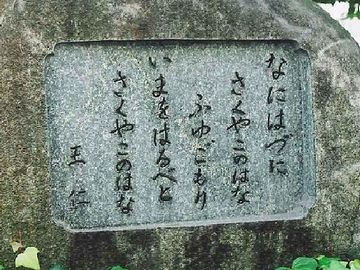 なにはづに
さくやこのはな
ふゆごもり
いまをはるべと
さくやこのはな
王仁